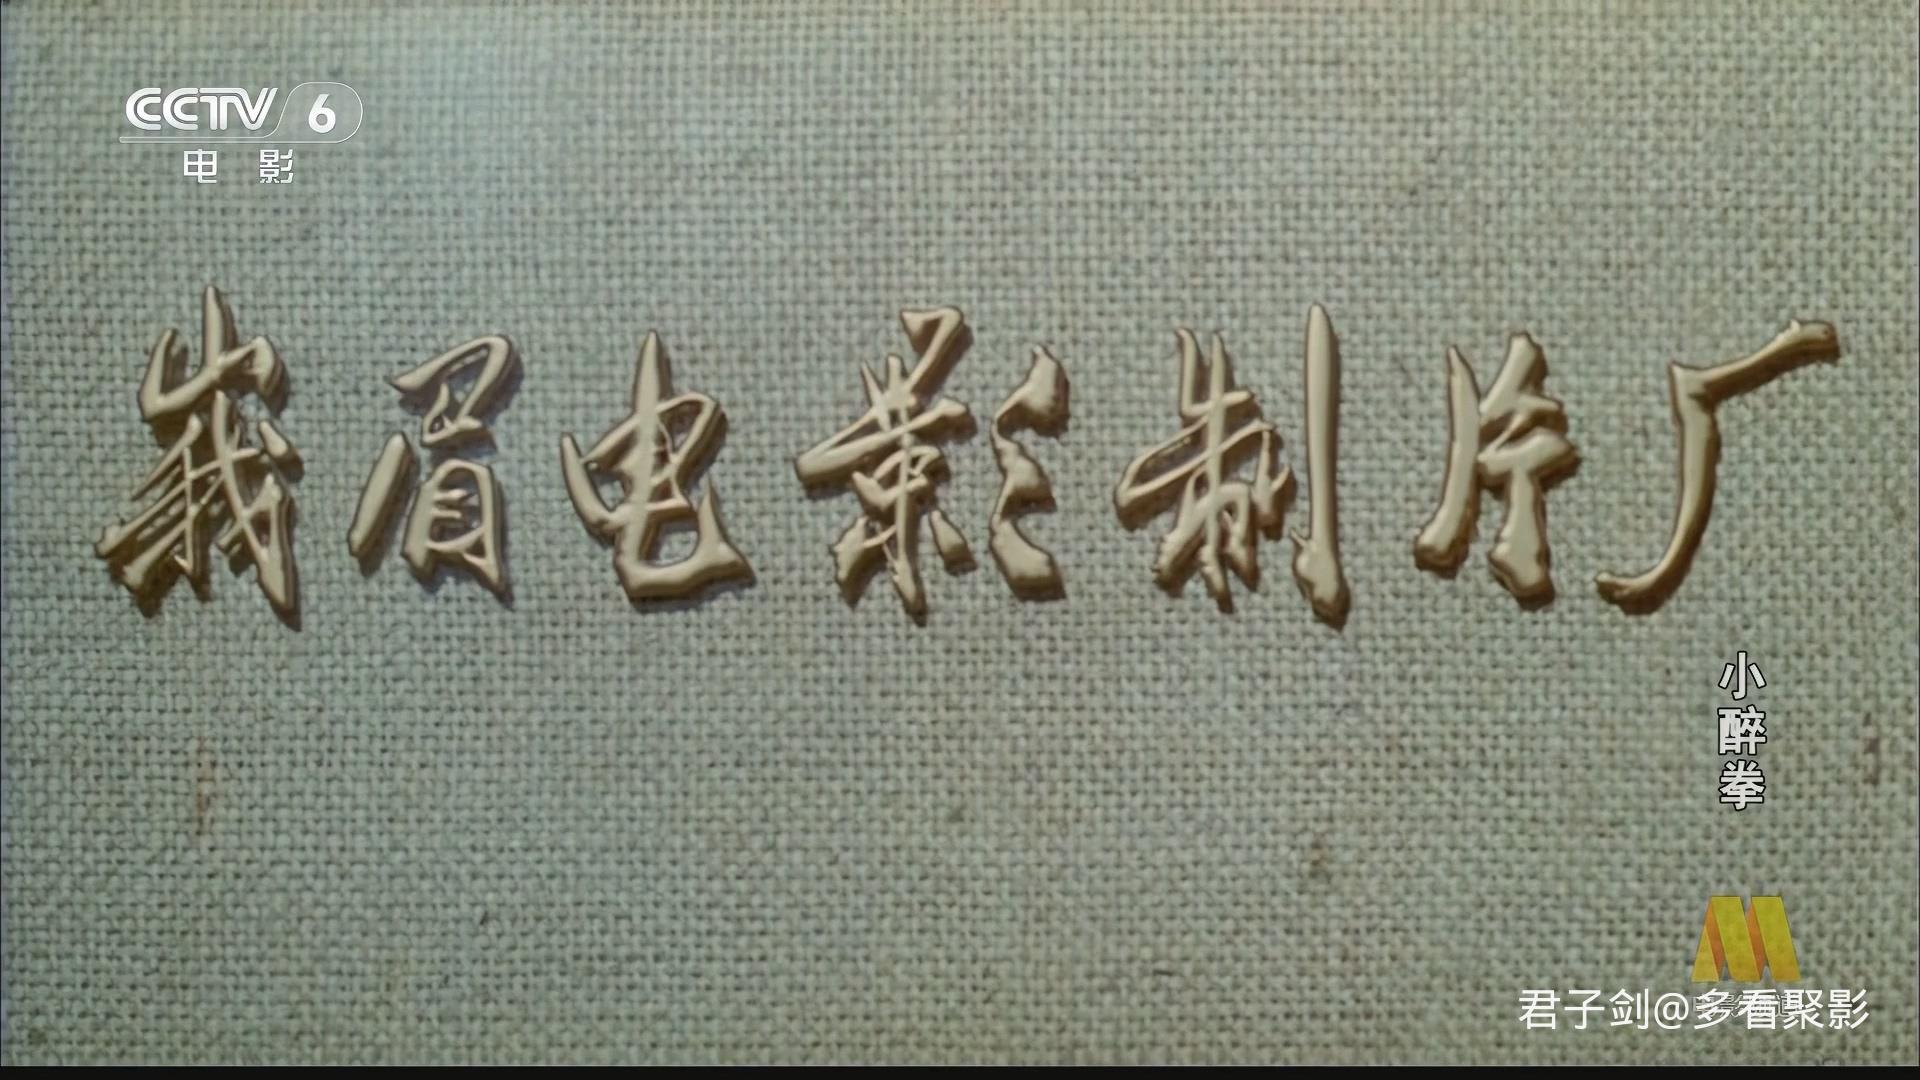 CCTV 6
电影
峨眉电影制片厂
小醉拳
君子剑@多看聚影